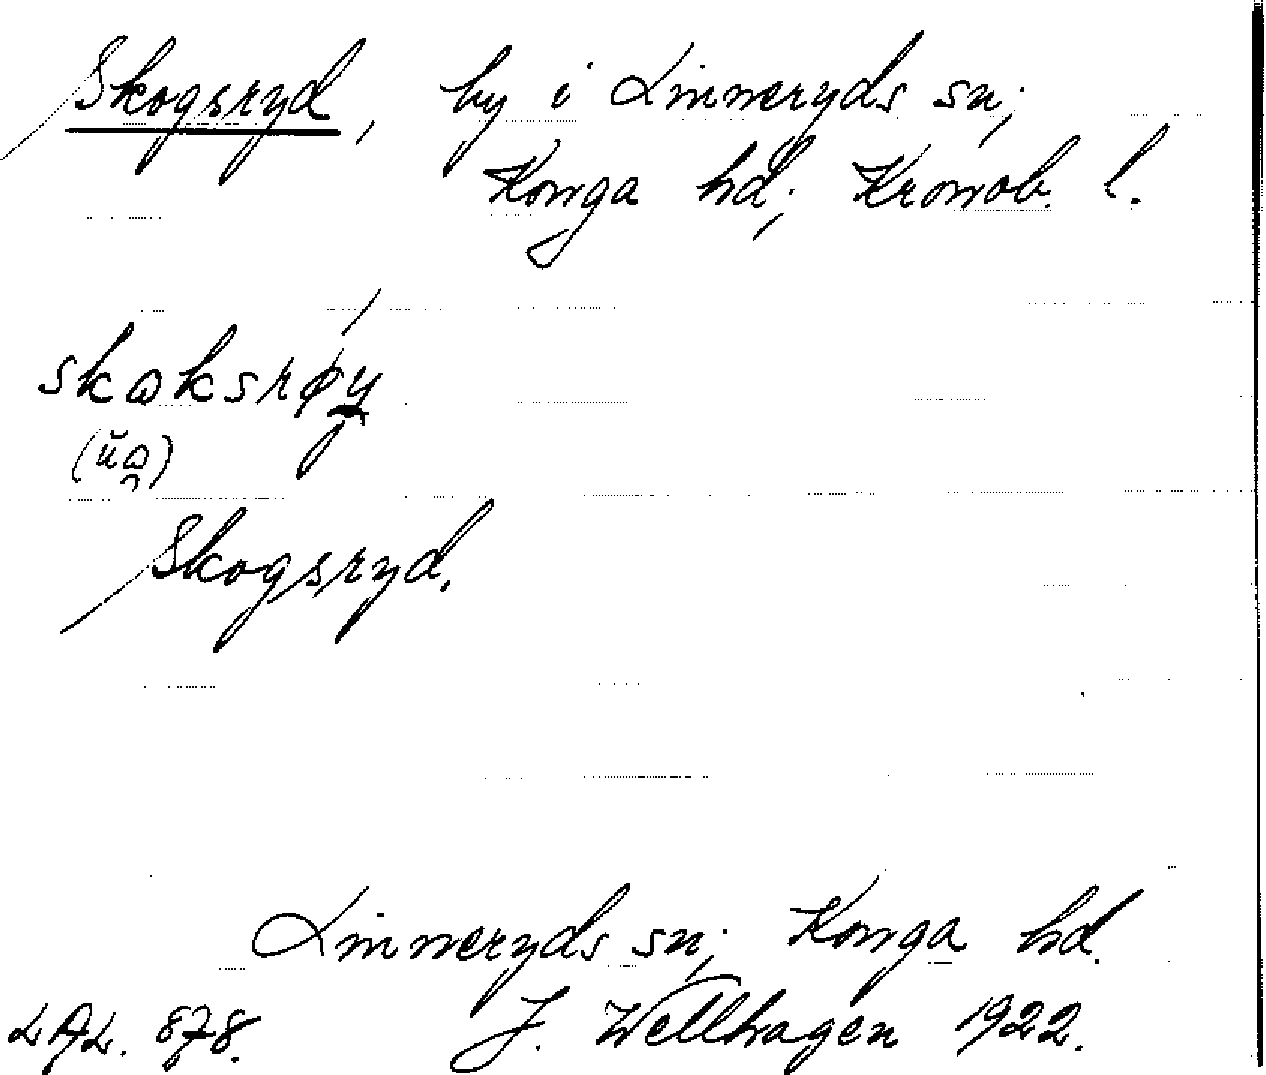 Skogsryd, by i Linneryds sn;
Konga hd; Kronob. l.
skɷksrøy
Skogsryd.
Linneryds sn; Konga hd.
LAL. 878. J. Wellhagen 1922.